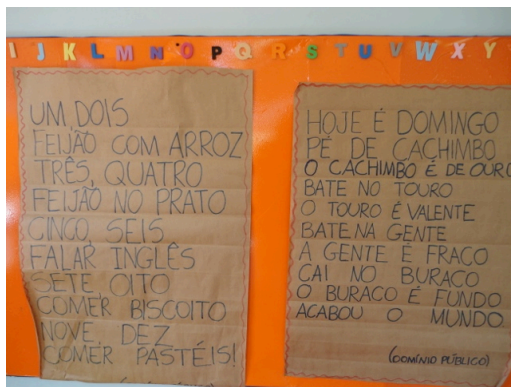 I J K L M N O P Q R S T U V W X Y
UM, DOIS
FEIJÃO COM ARROZ
TRÊS, QUATRO
FEIJÃO NO PRATO
CINCO, SEIS
FALAR INGLÊS
SETE OITO
COMER BISCOITO
NOVE, DEZ
COMER PASTÉIS!
HOJE É DOMINGO
PÉ DE CACHIMBO
O CACHIMBO É DE OURO
BATE NO TOURO
O TOURO É VALENTE
BATE NA GENTE
A GENTE É FRACO
CAI NO BURACO
O BURACO É FUNDO
ACABOU O MUNDO
(DOMÍNIO PÚBLICO)